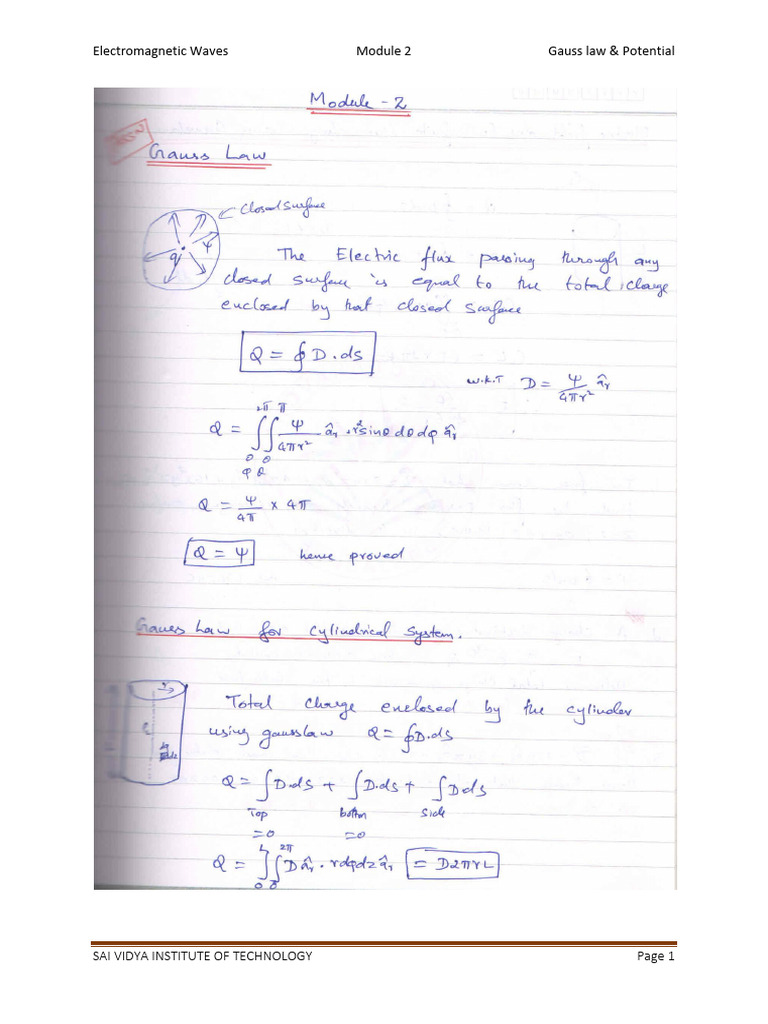 Electromagnetic Waves Module 2 Gauss law & Potential
Module - 2
Gauss Law
closed surface
ψ
q
The Electric flux passing through any
closed surface is equal to the total charge
enclosed by that closed surface
Q = ∮ D . ds
w.k.T D = ψ/4πr² âr
Q = ∫₀^2π ∫₀^π ψ/4πr² âr . r² sinθ dθ dφ âr
φ θ
Q = ψ/4π × 4π
Q = ψ hence proved
Gauss Law for cylindrical system.
Total charge enclosed by the cylinder
using gauss law Q = ∮ D.ds
Q = ∫ D.ds + ∫ D.ds + ∫ D.ds
Top bottom side
=0 =0
Q = ∫₀^L ∫₀^2π D âr . r dφ dz âr = D2πrL
SAI VIDYA INSTITUTE OF TECHNOLOGY Page 1